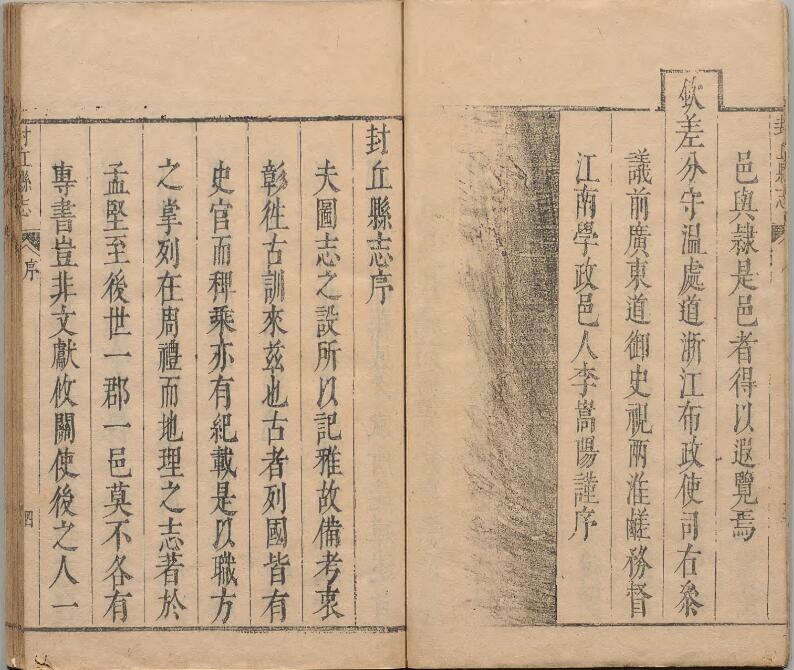 邑與隷是邑者得以遐覽焉
欽差分守温處道浙江布政使司右叅
議前廣東道御史視兩淮鹺務督
江南學政邑人李嵩陽謹序
封丘縣志
封丘縣志序
夫圖志之設所以記雅故備考衷
彰徃古訓來茲也古者列國皆有
史官而稗乘亦有紀載是以職方
之掌列在周禮而地理之志著於
孟堅至後世一郡一邑莫不各有
專書豈非文獻攸關使後之人一
封丘縣志
序
四